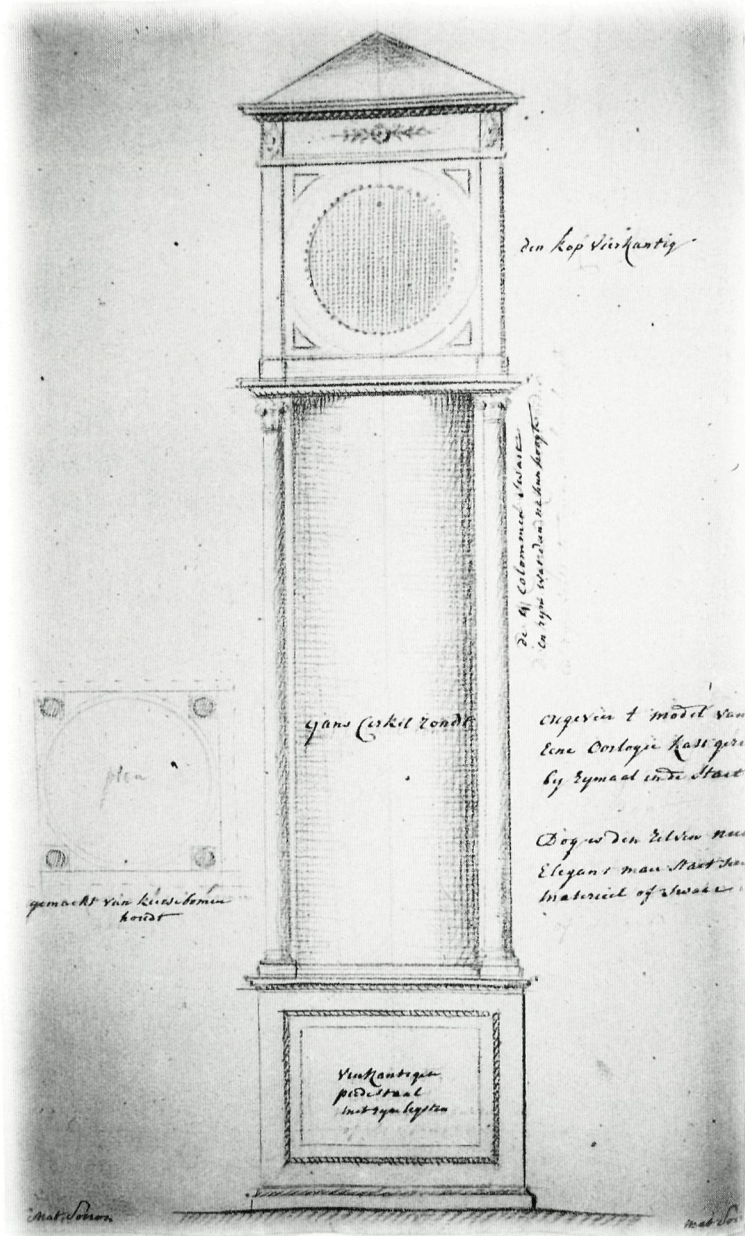 den kop vierkantig
de 4 Colommen swart
en zyn wat dan
gans Cirkel rondt
plan
gemackt van kerseboomen
houdt
ongeveer t model van
Eene Oorlogie kass
by Zymaal inde Staet
Dog is den Zelven
Elegant maer staet
materieel of swaer
vierkantigen
piedestaal
met zyn leysten
Mat. Soiron
Mat.